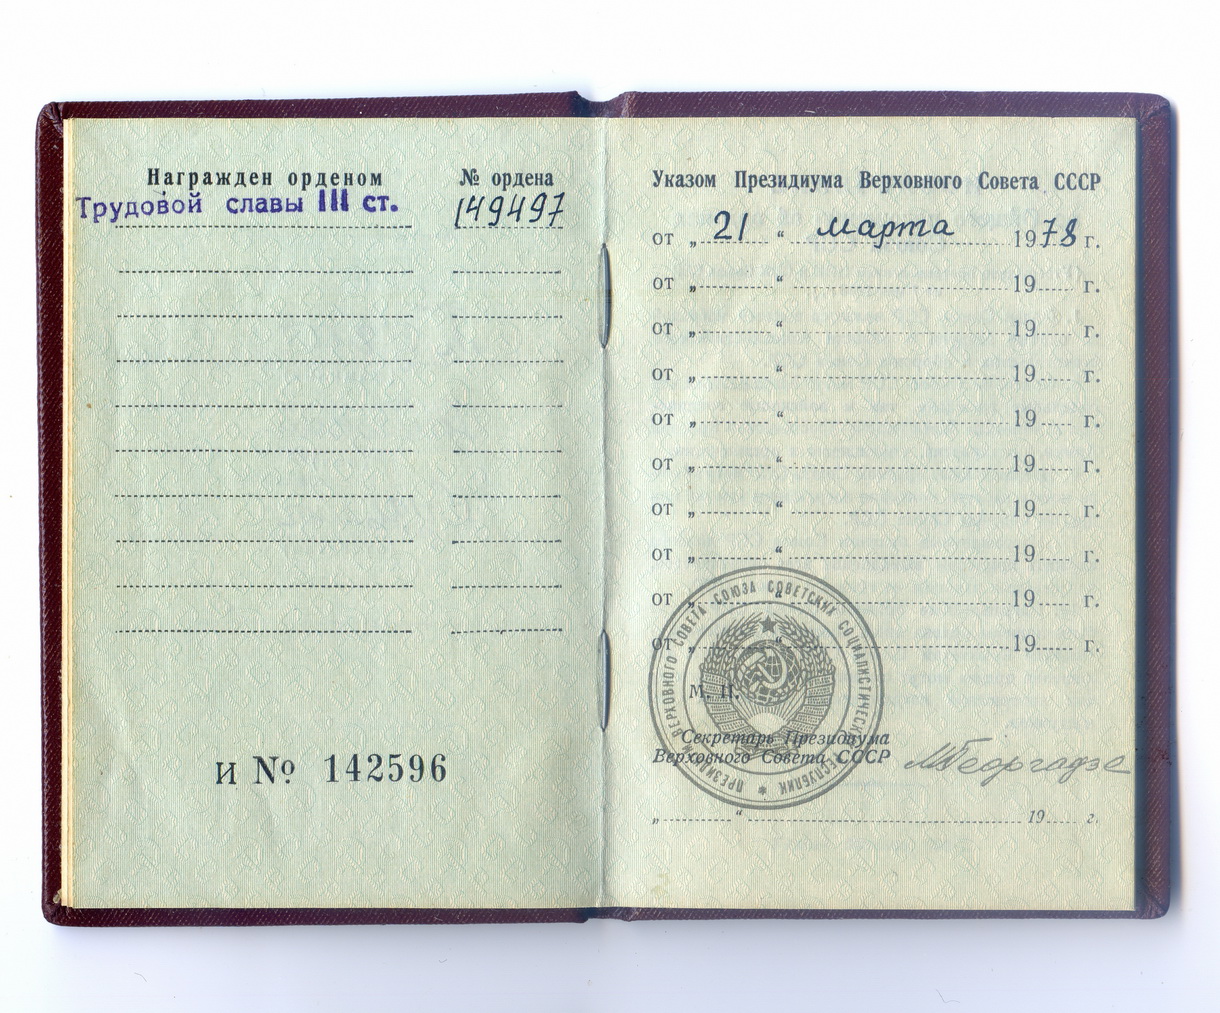 Награжден орденом
№ ордена
Трудовой славы III ст.
149497
И № 142596
Указом Президиума Верховного Совета СССР
от „ 21 “ марта 1978 г.
от „ “ 19 г.
от „ “ 19 г.
от „ “ 19 г.
от „ “ 19 г.
от „ “ 19 г.
от „ “ 19 г.
от „ “ 19 г.
от „ “ 19 г.
от „ “ 19 г.
ПРЕЗИДИУМ ВЕРХОВНОГО СОВЕТА СОЮЗА СОВЕТСКИХ СОЦИАЛИСТИЧЕСКИХ РЕСПУБЛИК
М. П.
Секретарь Президиума
Верховного Совета СССР
МГеоргадзе
„ “ 19 г.